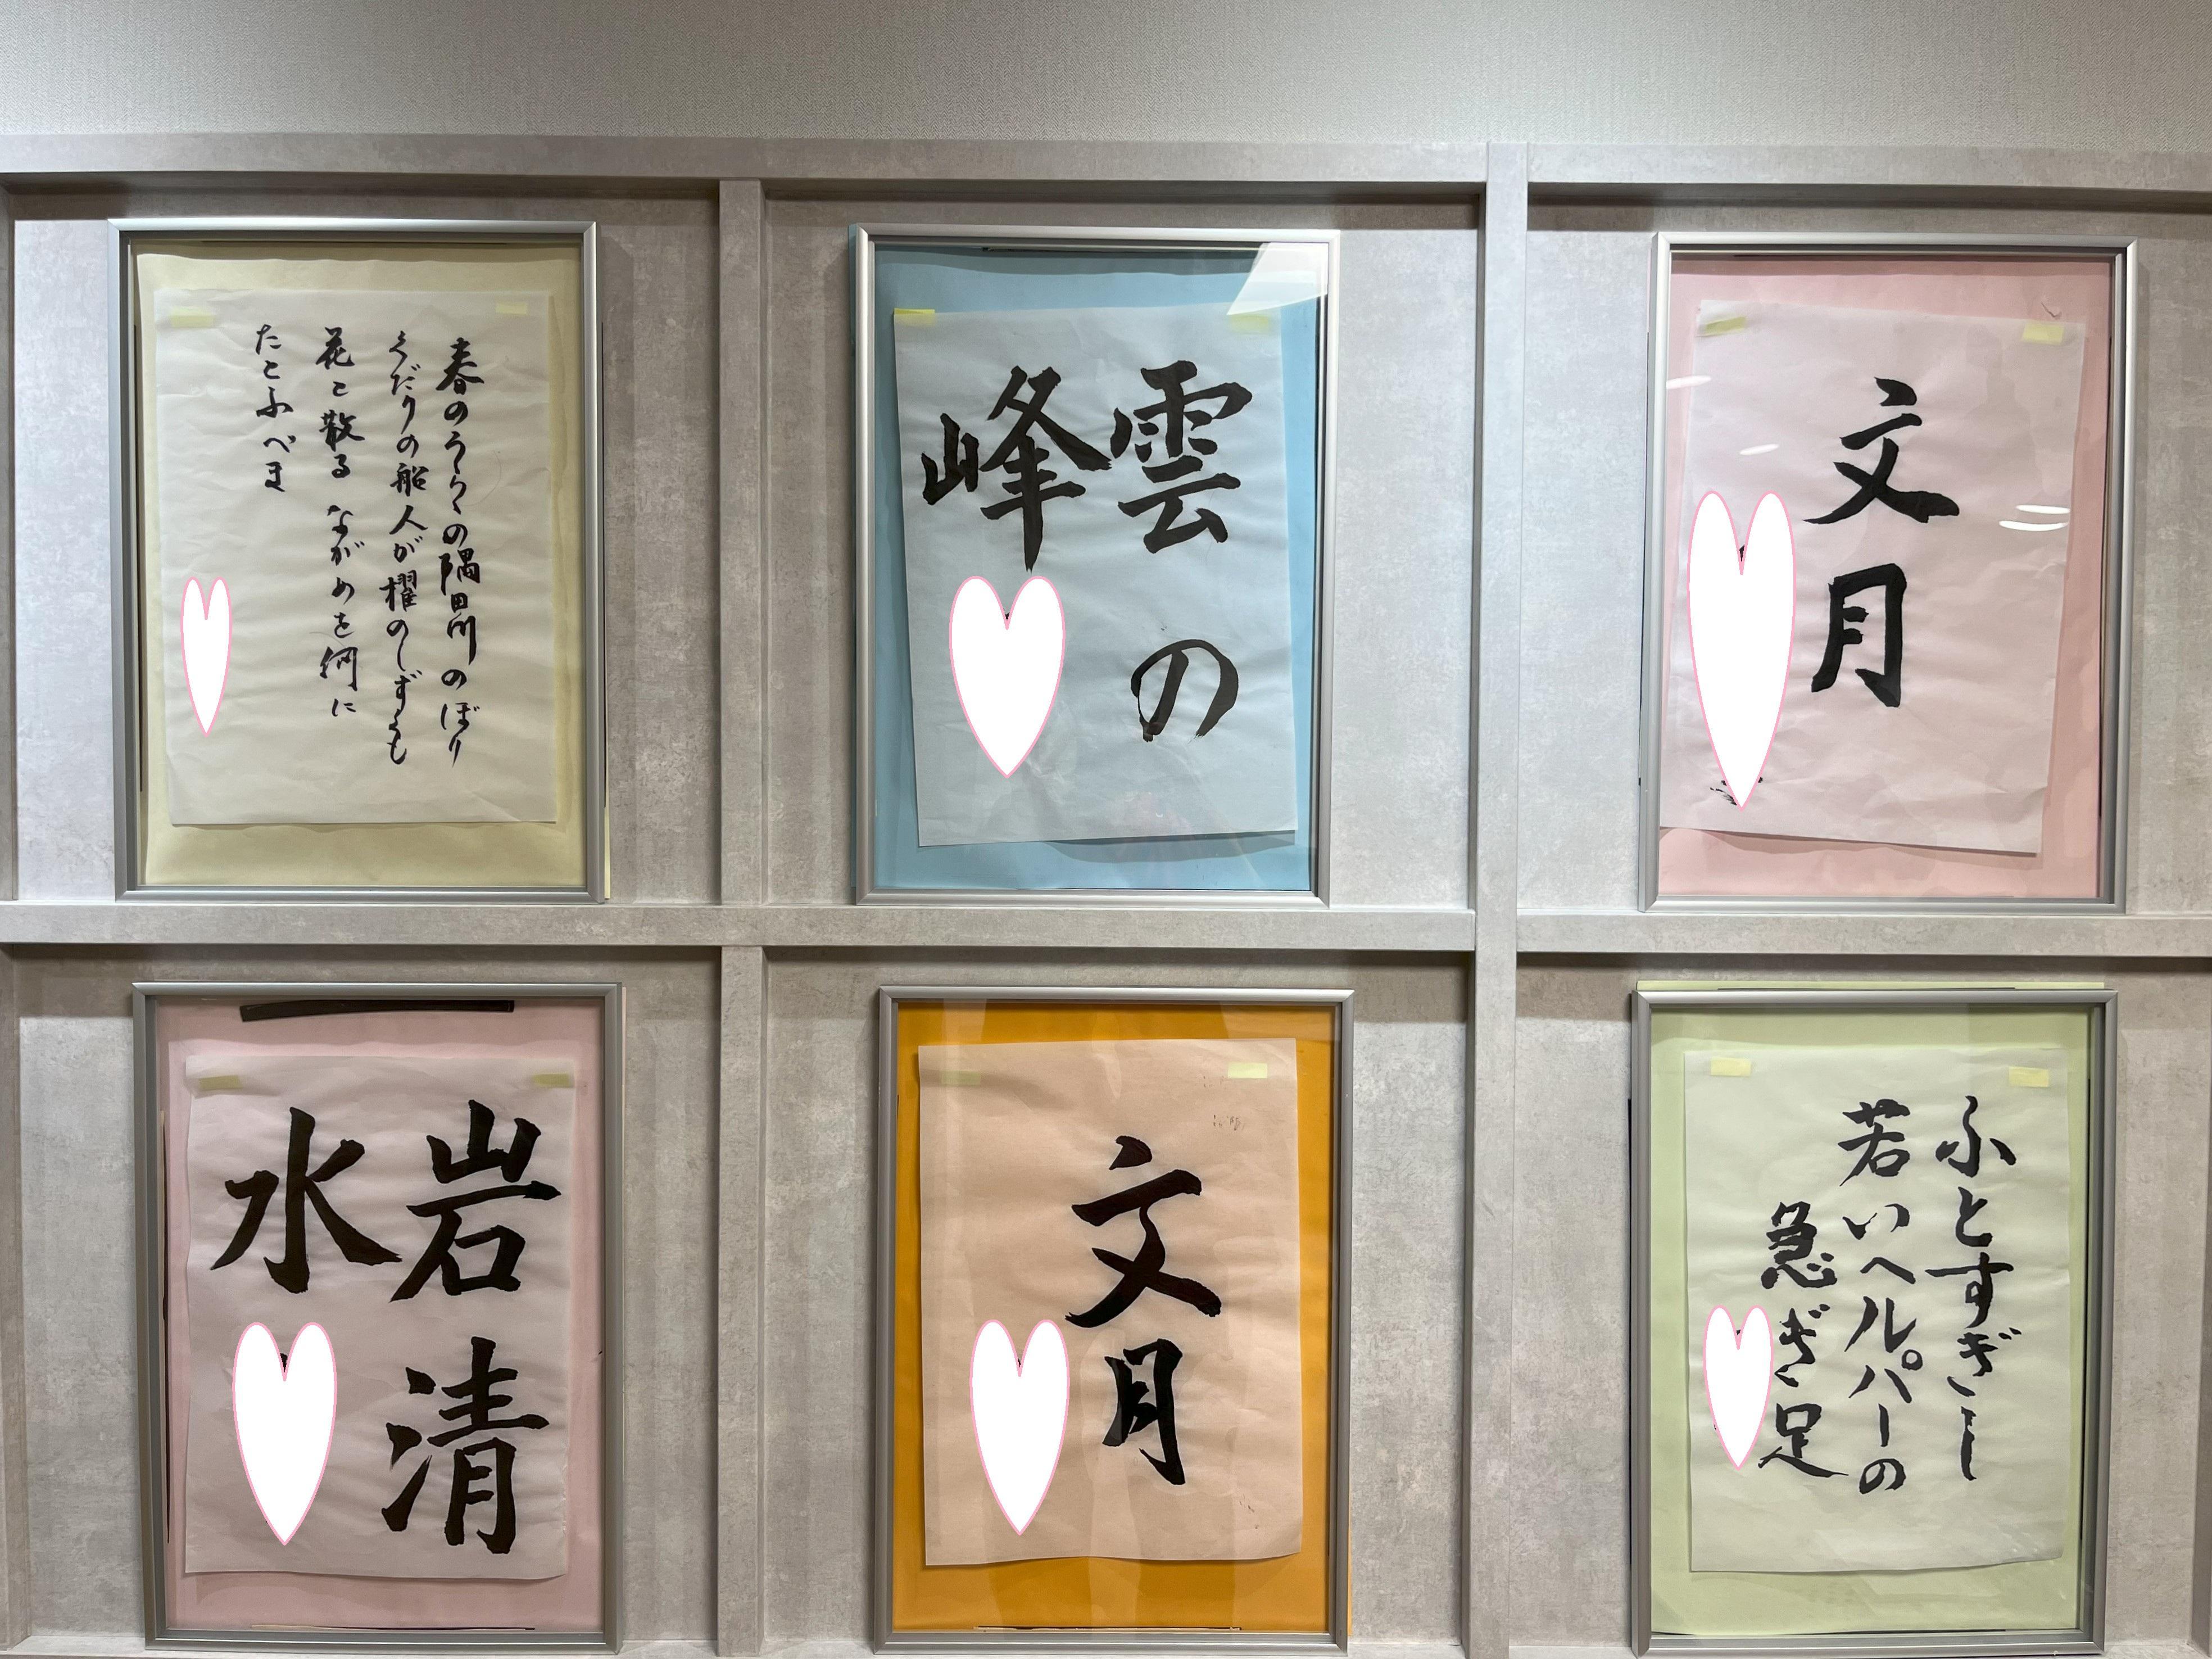 春のうらゝの隅田川 のぼり
くだりの船人が櫂のしずくも
花と散る ながめを何に
たとふべき
雲の
峰
文月
岩清
水
文月
ふとすぎし
若いヘルパーの
急ぎ足